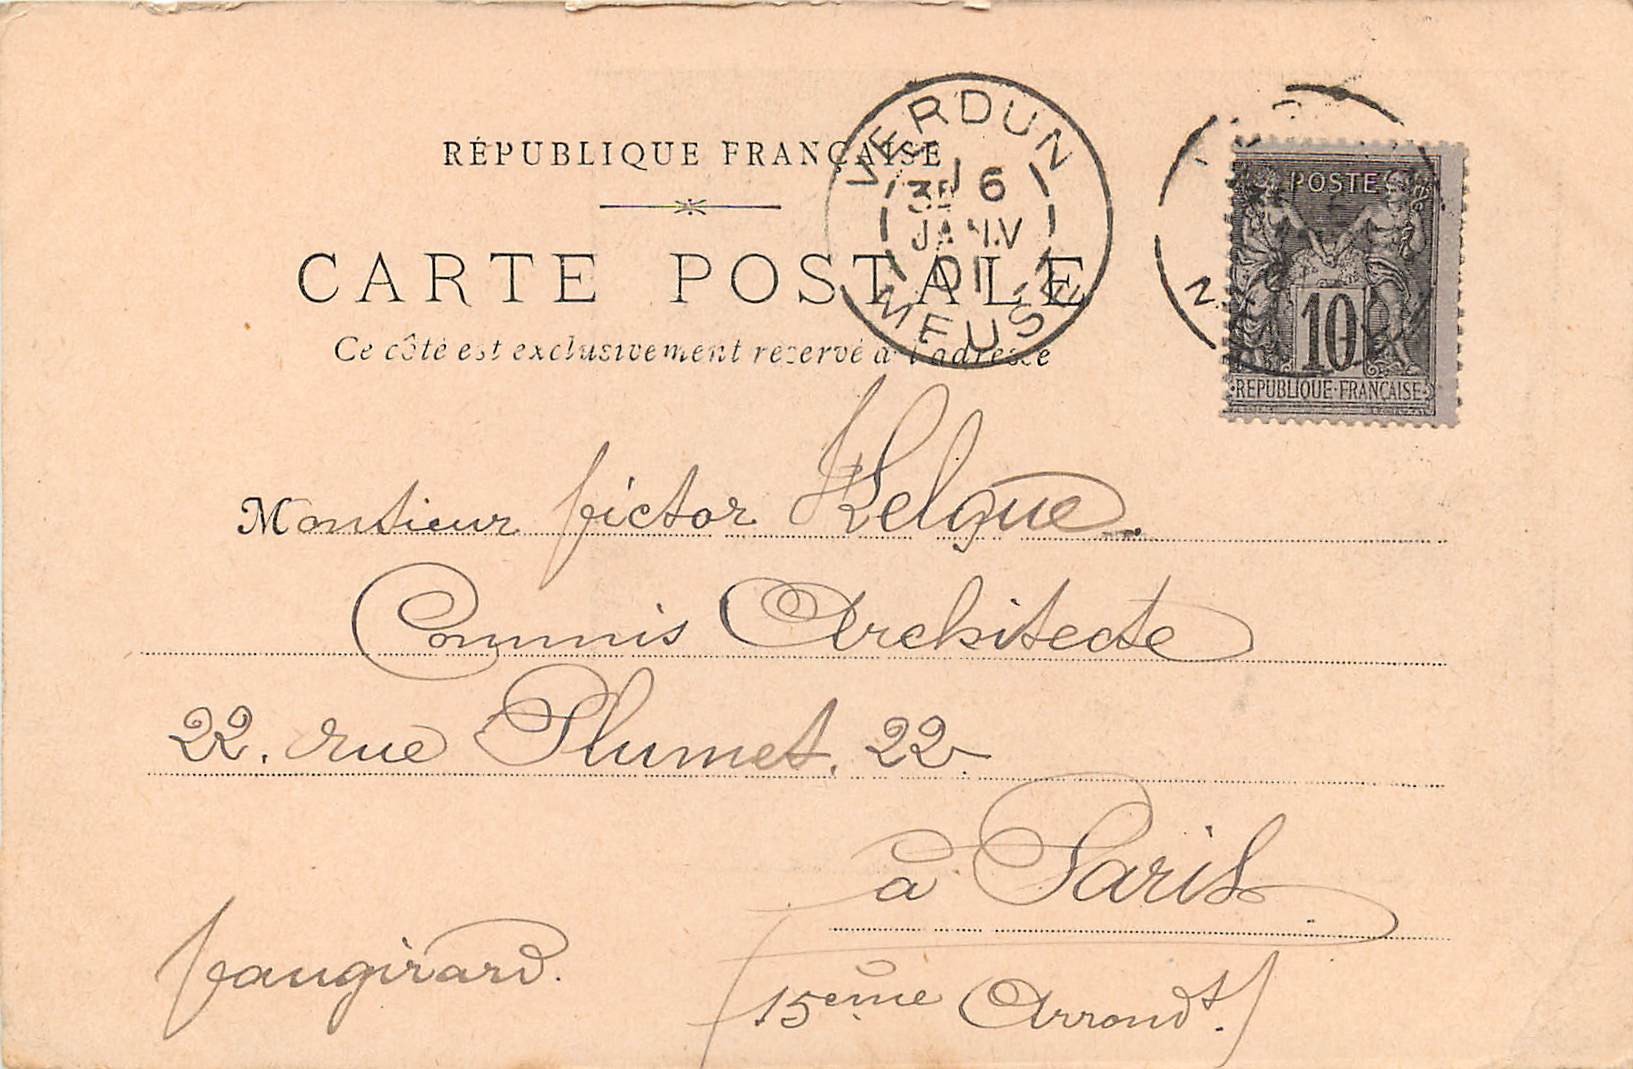 RÉPUBLIQUE FRANÇAISE
CARTE POSTALE
Ce côté est exclusivement reservé à l'adresse
VERDUN
3E 6
JANV
01
MEUSE
POSTES
10
REPUBLIQUE FRANÇAISE
Monsieur Victor Helque
Commis Architecte
22. rue Plumet. 22
à Paris
Vaugirard.
(15eme Arrondt.)